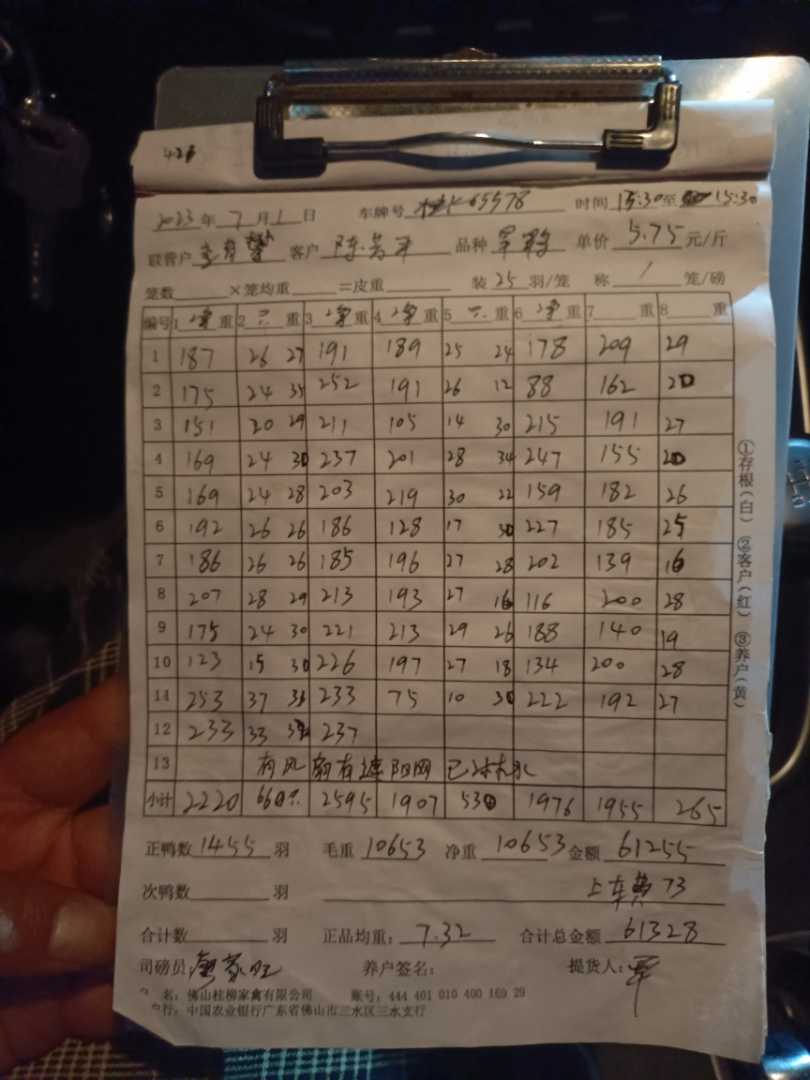 2023年7月1日 车牌号 65578 时间15:30至 15:30
联营户 客户 陈 品种 单价 5.75 元/斤
笼数 ×笼均重 =皮重 装 25 羽/笼 称 / 笼/磅
编号 1 重 2 重 3 重 4 重 5 重 6 重 7 重 8 重
1 187 26 27 191 189 25 24 178 209 29
2 175 24 35 252 191 26 12 88 162 20
3 151 20 29 211 105 14 30 215 191 27
4 169 24 30 237 201 28 34 247 155 20
5 169 24 28 203 219 30 22 159 182 26
6 192 26 26 186 128 17 30 227 185 25
7 186 26 26 185 196 27 28 202 139 16
8 207 28 29 213 193 27 16 116 200 28
9 175 24 30 221 213 29 26 188 140 19
10 123 15 30 226 197 27 18 134 200 28
11 253 37 233 75 10 30 222 192 27
12 233 33 237
13 有风 有遮阳网 已 水
小计 2220 660 2595 1907 530 1976 1955 265
正鸭数 1455 羽 毛重 10653 净重 10653 金额 61255
次鸭数 羽 上车费 73
合计数 羽 正品均重: 7.32 合计总金额 61328
司磅员 养户签名: 提货人: 军
名: 佛山桂柳家禽有限公司 账号: 444 401 010 400 169 29
行: 中国农业银行广东省佛山市三水区三水支行
①存根(白) ②客户(红) ③养户(黄)